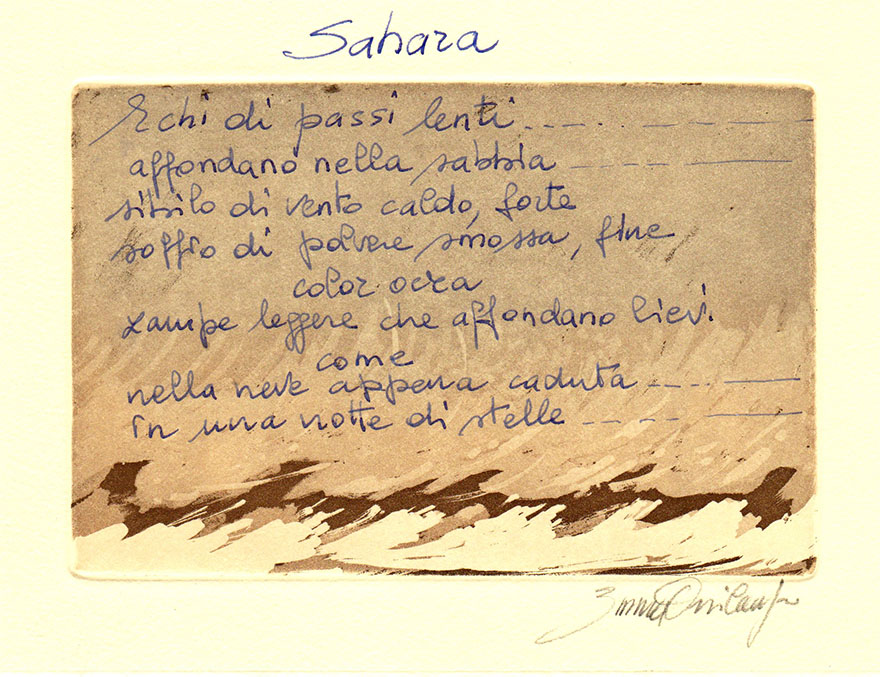 Sahara
Echi di passi lenti... _ . _ . . _ _ _
affondano nella sabbia _ _ _ _ _
sibilo di vento caldo, forte
soffio di polvere smossa, fine
color ocra
zampe leggere che affondano lievi.
come
nella neve appena caduta _ . _ . _
in una notte di stelle _ _ _ . _